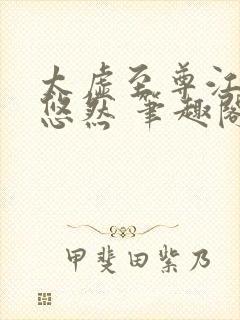 太虚至尊江
悠然 筆趣閣
甲斐田紫乃